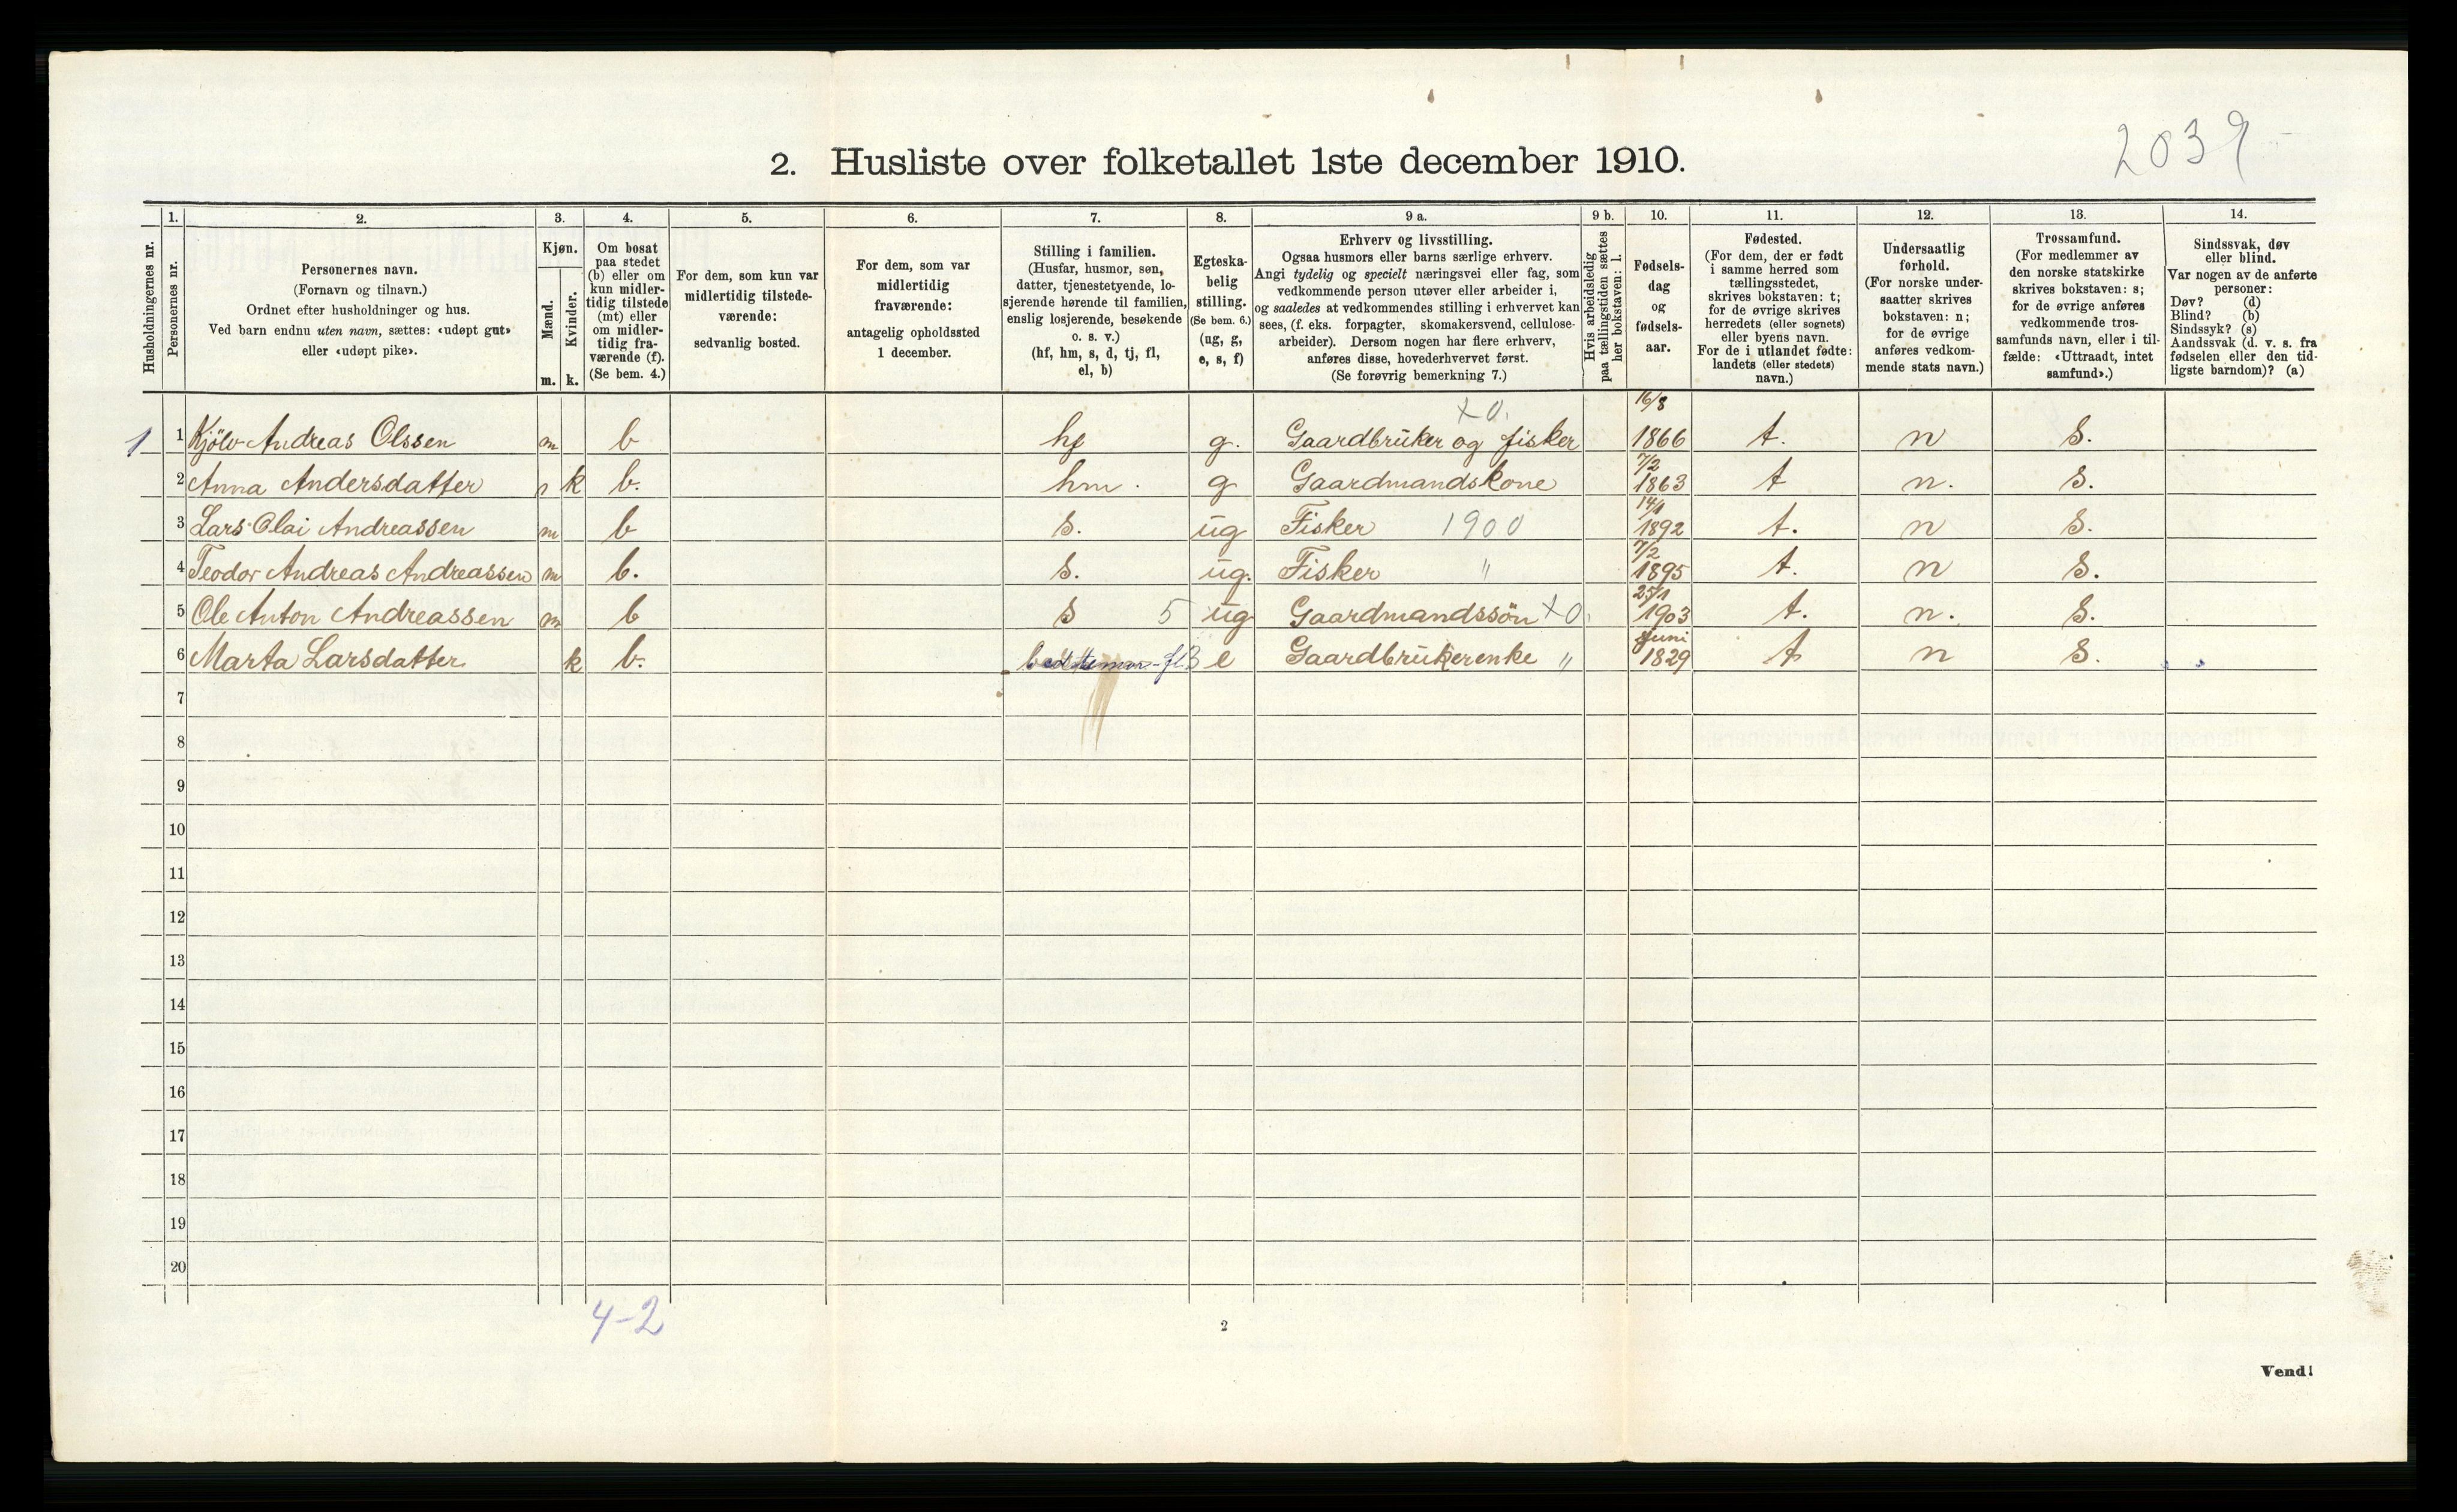 2039
2. Husliste over folketallet 1ste december 1910.
Husholdningernes nr.
1.
Personernes nr.
2.
Personernes navn.
(Fornavn og tilnavn.)
Ordnet efter husholdninger og hus.
Ved barn endnu uten navn, sættes: «udøpt gut»
eller «udøpt pike».
3.
Kjøn.
Mænd.
m.
Kvinder.
k.
4.
Om bosat
paa stedet
(b) eller om
kun midler-
tidig tilstede
(mt) eller
om midler-
tidig fra-
værende (f).
(Se bem. 4.)
5.
For dem, som kun var
midlertidig tilstede-
værende:
sedvanlig bosted.
6.
For dem, som var
midlertidig
fraværende:
antagelig opholdssted
1 december.
7.
Stilling i familien.
(Husfar, husmor, søn,
datter, tjenestetyende, lo-
sjerende hørende til familien,
enslig losjerende, besøkende
o. s. v.)
(hf, hm, s, d, tj, fl,
el, b)
8.
Egteska-
belig
stilling.
(Se bem. 6.)
(ug, g,
e, s, f)
9 a.
Erhverv og livsstilling.
Ogsaa husmors eller barns særlige erhverv.
Angi tydelig og specielt næringsvei eller fag, som
vedkommende person utøver eller arbeider i,
og saaledes at vedkommendes stilling i erhvervet kan
sees, (f. eks. forpagter, skomakersvend, cellulose-
arbeider). Dersom nogen har flere erhverv,
anføres disse, hovederhvervet først.
(Se forøvrig bemerkning 7.)
9 b.
Hvis arbeidsledig
paa tællingstiden sættes
her bokstaven: l.
10.
Fødsels-
dag
og
fødsels-
aar.
11.
Fødested.
(For dem, der er født
i samme herred som
tællingsstedet,
skrives bokstaven: t;
for de øvrige skrives
herredets (eller sognets)
eller byens navn.
For de i utlandet fødte:
landets (eller stedets)
navn.)
12.
Undersaatlig
forhold.
(For norske under-
saatter skrives
bokstaven: n;
for de øvrige
anføres vedkom-
mende stats navn.)
13.
Trossamfund.
(For medlemmer av
den norske statskirke
skrives bokstaven: s;
for de øvrige anføres
vedkommende tros-
samfunds navn, eller i til-
fælde: «Uttraadt, intet
samfund».)
14.
Sindssvak, døv
eller blind.
Var nogen av de anførte
personer:
Døv? (d)
Blind? (b)
Sindssyk? (s)
Aandssvak (d. v. s. fra
fødselen eller den tid-
ligste barndom)? (a)
x 0. 16/8
1 1 Kjölv Andreas Olssen m b hf g. Gaardbruker og fisker 1866 t. n S.
7/2
2 Anna Andersdatter k b. hm. g Gaardmandskone 1863 t n. S.
14/1
3 Lars Olai Andreassen m b s. ug Fisker 1900 1892 t. n S.
7/2
4 Teodor Andreas Andreassen m b. s. ug. Fisker " 1895 t. n S.
25/1
5 Ole Anton Andreassen m b s 5 ug Gaardmandssön x0. 1903 t. n. S.
Juni
6 Marta Larsdatter k b. fl 3 e Gaardbrukerenke " 1829 t n S.
7
8
9
10
11
12
13
14
15
16
17
18
19
20
4-2
2
Vend!